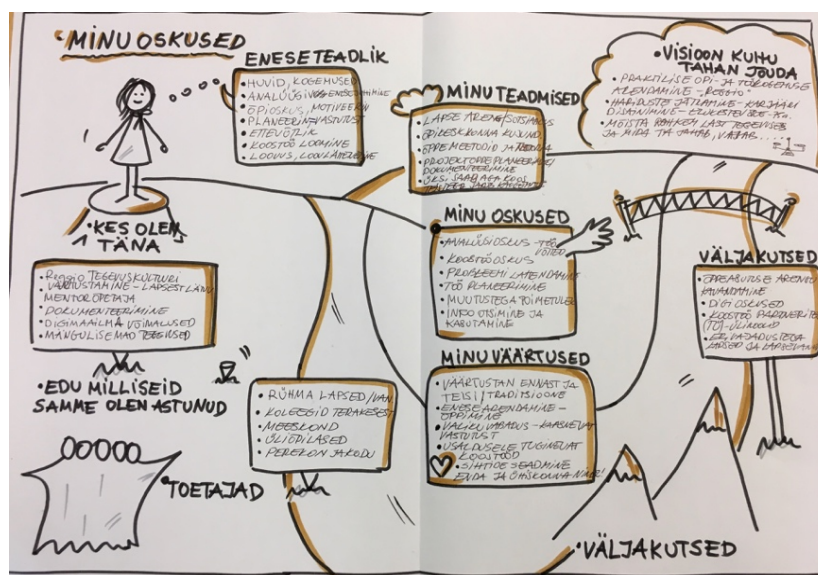 • MINU OSKUSED
ENESETEADLIK
• HUVID, KOGEMUSED
• ÕPIOSKUS, MOTIVEERIV
• ETTEVÕTLIK
• KOOSTÖÖ LOOMINE
• LOOVUS,
• KES OLEN
TÄNA
• REGGIO TEGEVUSKULTUURI
VÄÄRTUSTAMINE - LAPSEST LÄHTUV
MENTORÕPETAJA
• DOKUMENTEERIMINE
• DIGIMAAILMA VÕIMALUSED
• MÄNGULISEMAD TEGEVUSED
• EDU MILLISEID
SAMME OLEN ASTUNUD
TOETAJAD
• RÜHMA LAPSED/VAN.
• KOLEEGID TERAKESEST
• MEESKOND
• ÜLIÕPILASED
• PEREKOND JA KODU
MINU TEADMISED
• LAPSE ARENG/
• ÕPPEMEETODID JA TEOORIA
• PROJEKTÕPPE PLANEERIMINE/
DOKUMENTEERIMINE
MINU OSKUSED
• ANALÜÜSIOSKUS - TÖÖ
VÕTTED
• KOOSTÖÖOSKUS
• PROBLEEMI LAHENDAMINE
• TÖÖ PLANEERIMINE
• MUUTUSTEGA TOIMETULEK
• INFO OTSIMINE JA
KASUTAMINE
MINU VÄÄRTUSED
• VÄÄRTUSTAN ENNAST JA
TEISI/TRADITSIOONE
• ENESEARENDAMINE -
ÕPPIMINE
• VALIKUVABADUS - KAASNEVAT
VASTUTUST
• USALDUSELE TUGINEVAT
KOOSTÖÖD
• SIHTIDE SEADMINE
ENDA JA ÜHISKONNA NIMEL!
• VISIOON KUHU
TAHAN JÕUDA
• PRAKTILISE ÕPI- JA TÖÖKOGEMUSE
ARENDAMINE - "REGGIO"
• HARIDUSTEE JÄTKAMINE - KARJÄÄRI
• MÕISTA ROHKEM LAST TEGEVUSES
JA MIDA TA TAHAB, VAJAB....
VÄLJAKUTSED
KAVANDAMINE
• DIGIOSKUSED
• KOOSTÖÖ PARTNERITEGA
(TÜ) - ÜLIKOOLID
• ERIVAJADUSTEGA
LAPSED JA LAPSEVANEM
• VÄLJAKUTSED